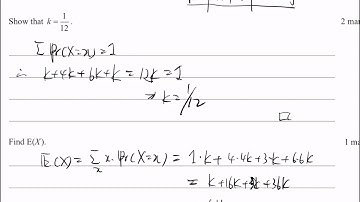 Show that k = 1/12. 2 mar
Σ Pr(X=x) = 1
∴ k+4k+6k+k = 12k = 1
⇒ k = 1/12
Find E(X). 1 ma
E(X) = Σ x. Pr(X=x) = 1·k + 4·4k + 3·k + 6·6k
x
= k + 16k + 3k + 36k